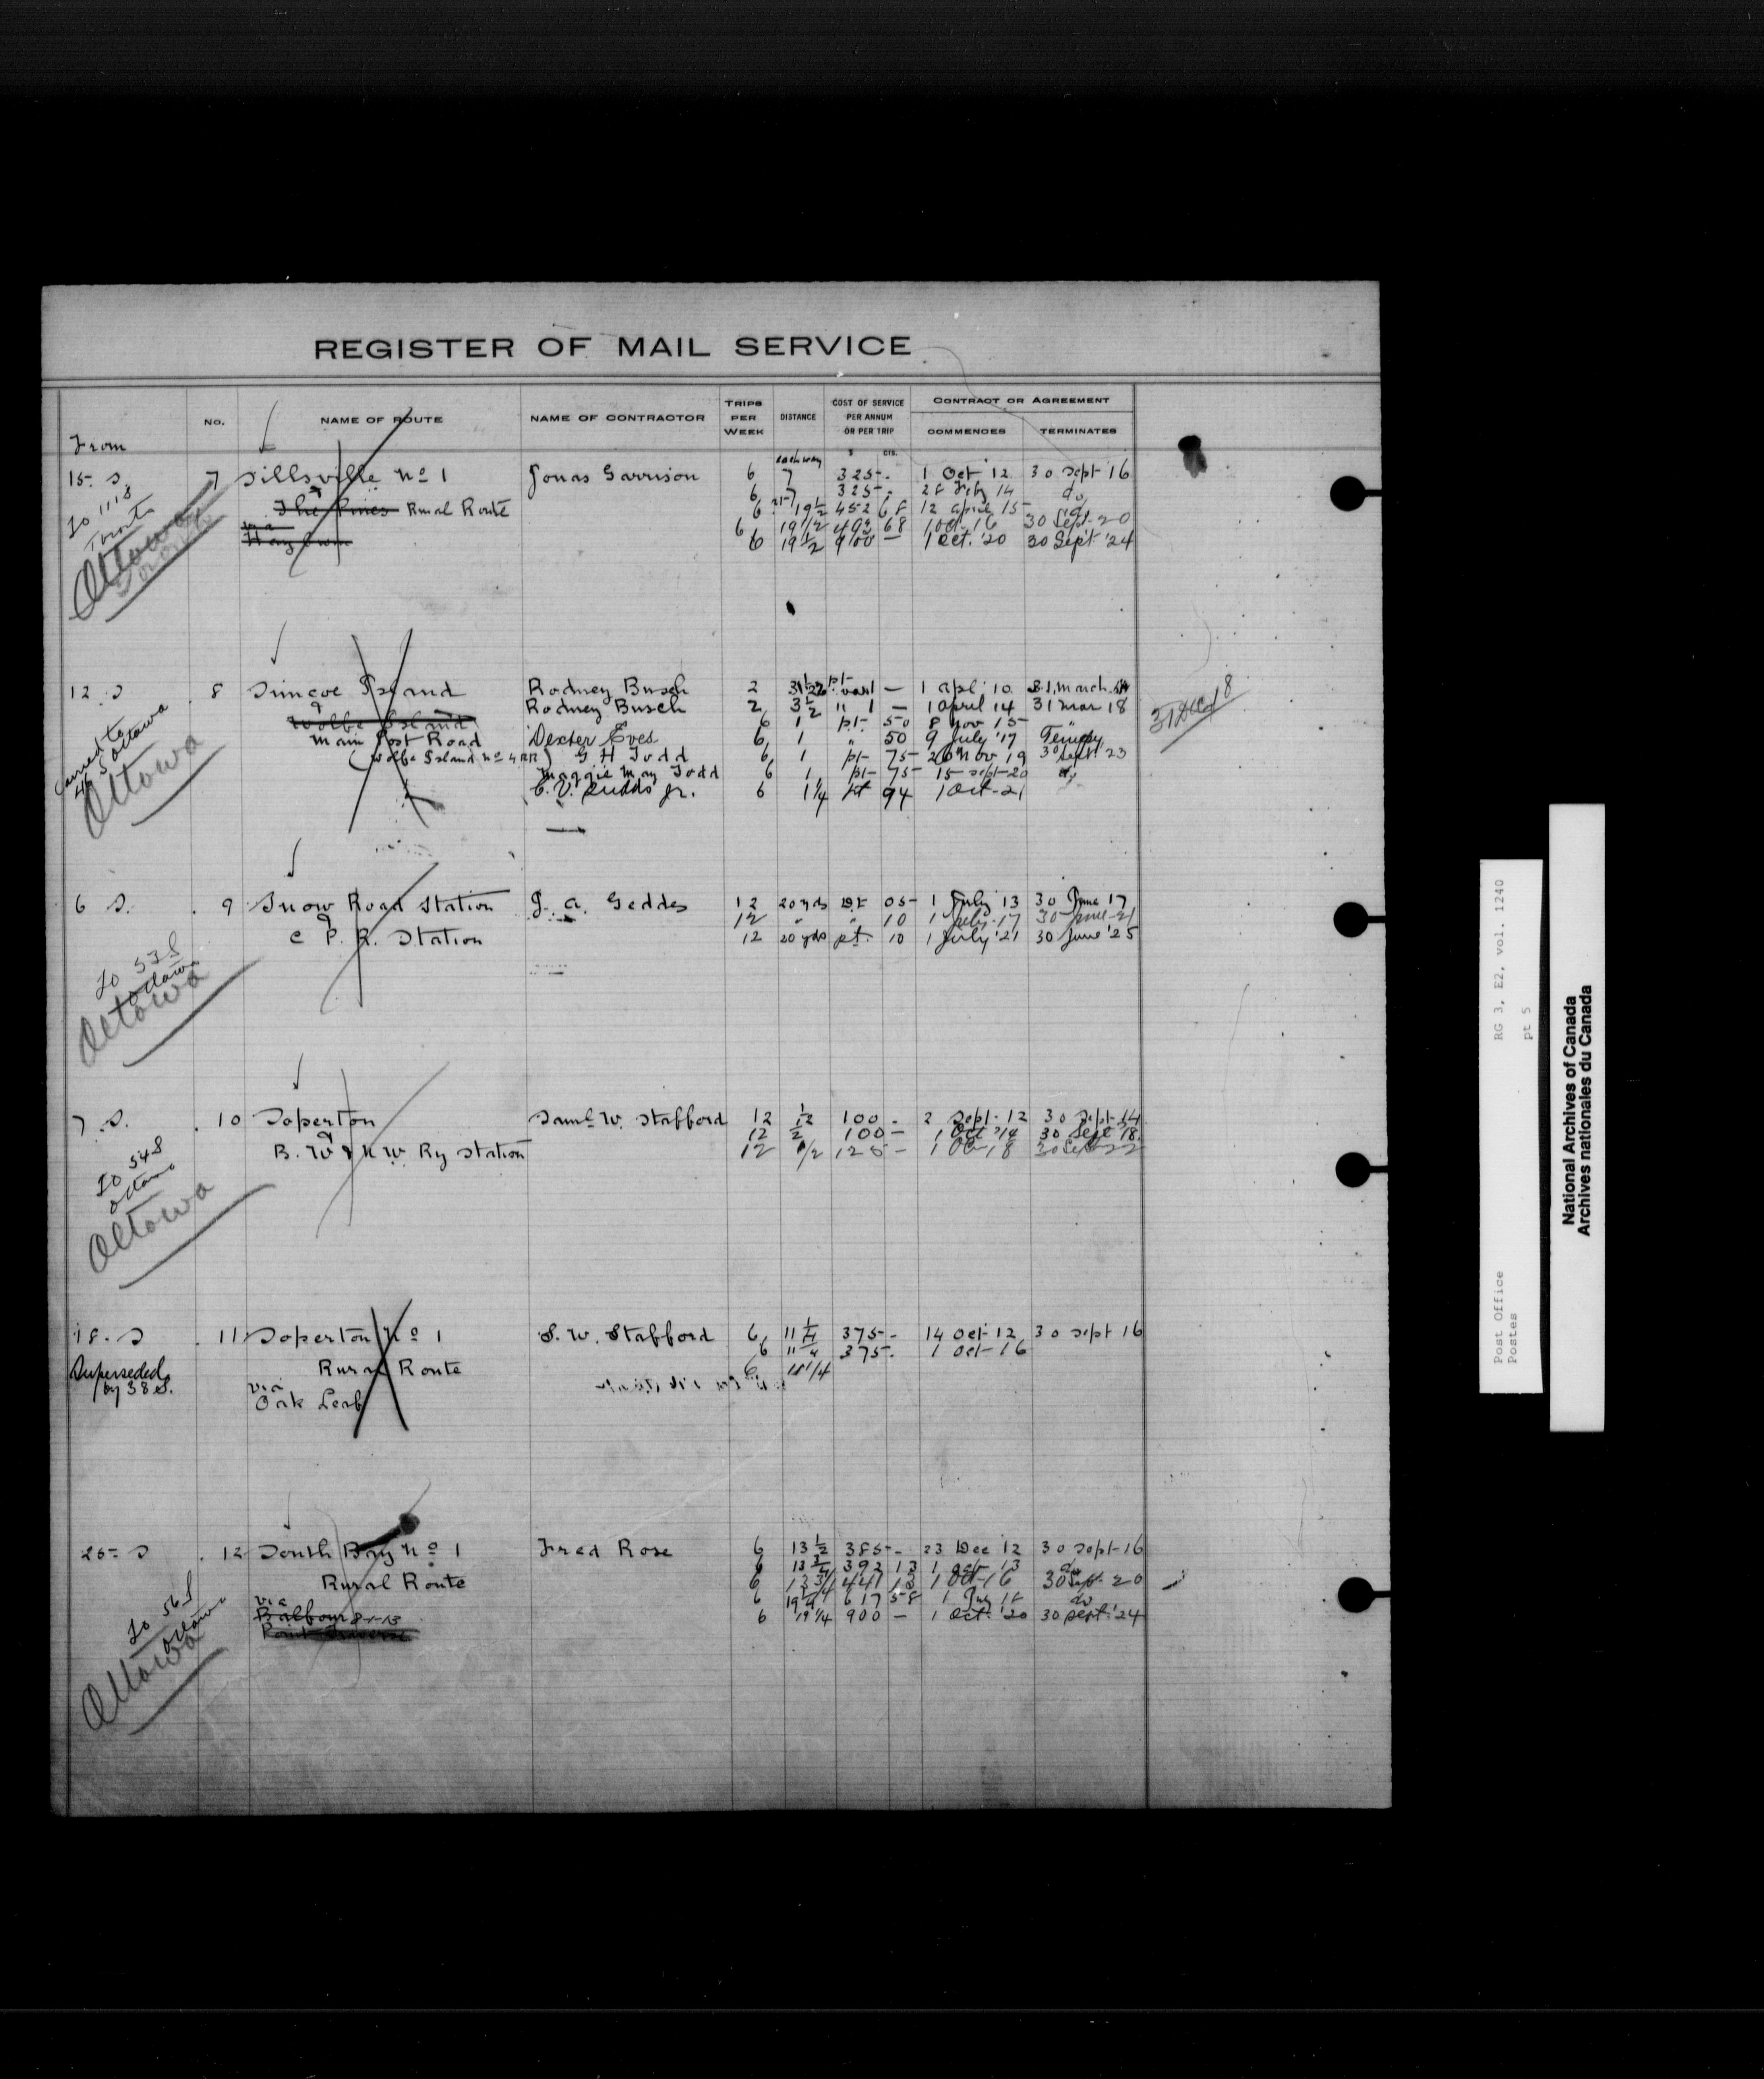 REGISTER OF MAIL SERVICE
From
NO.
NAME OF ROUTE
NAME OF CONTRACTOR
TRIPS PER WEEK
DISTANCE
COST OF SERVICE PER ANNUM OR PER TRIP
$ CTS.
CONTRACT OR AGREEMENT
COMMENCES
TERMINATES
15. S. 7 Sillsville No 1 Jonas Garrison 6 each way 7 325 - 1 Oct 12 30 Sept 16
6 7 325 - 28 Feby 14 do
The Pines Rural Route 6 19 1/2 452 68 12 april 15 do
via 6 19 1/2 492 68 1 Oct. 16 30 Sept-20
Hay Town 6 19 1/2 900 — 1 Oct. '20 30 Sept '24
To 111 S
Toronto
Ottawa
12. S 8 Simcoe Island Rodney Busch 2 — 1 apl 10 31 march 14
& Rodney Busch 2 3 1/2 " 1 — 1 april 14 31 Mar 18
Wolfe Island 6 1 pt- 50 8 Nov 15 "
Main Post Road Dexter Eves 6 1 " 50 9 July '17 Tempy
(Wolfe Island No 4 RR) G H Todd 6 1 pt- 75 26 Nov 19 30 Sept 23
Maggie May Todd 6 1 pt- 75 15 Sept-20 do
6 1 1/4 pt 94 1 Oct-21
Carried to
46 S Ottawa
Ottawa
31 DEC 18
6 S. 9 Snow Road Station J. A. Geddes 12 20 yds pt 05 1 July 13 30 June 17
& 12 " " 10 1 July-17 30 June-21
C. P. R. Station 12 20 yds pt. 10 1 July '21 30 June '25
To 53 S
Ottawa
Ottawa
7. S. 10 Soperton Saml W. Stafford 12 1/2 100 - 2 Sept-12 30 Sept-14
& 12 1/2 100 — 1 Oct '14 30 Sept '18
B. W & N W Ry Station 12 1/2 125 - 1 Oct 18 30 Sept 22
To 54 S
Ottawa
Ottawa
18. S 11 Soperton No 1 S. W. Stafford 6 11 1/4 375 - 14 Oct-12 30 Sept 16
6 11 1/4 375 - 1 Oct-16
Rural Route 6 11 1/4
Superseded
by 38 S.
via
Oak Leaf
25 S 12 South Bay No 1 Fred Rose 6 13 1/2 385 - 23 Dec 12 30 Sept-16
6 13 3/4 392 13 1 Oct 13 do
Rural Route 6 13 3/4 441 13 1 Oct-16 30 Sept. 20
via 6 19 1/4 617 58 1 July 18 do
Balfour 8-1-13 6 19 1/4 900 — 1 Oct. '20 30 Sept. '24
Point Traverse
To 56 S
Ottawa
Ottawa
Post Office RG 3, E2, vol. 1240
Postes pt 5
National Archives of Canada
Archives nationales du Canada